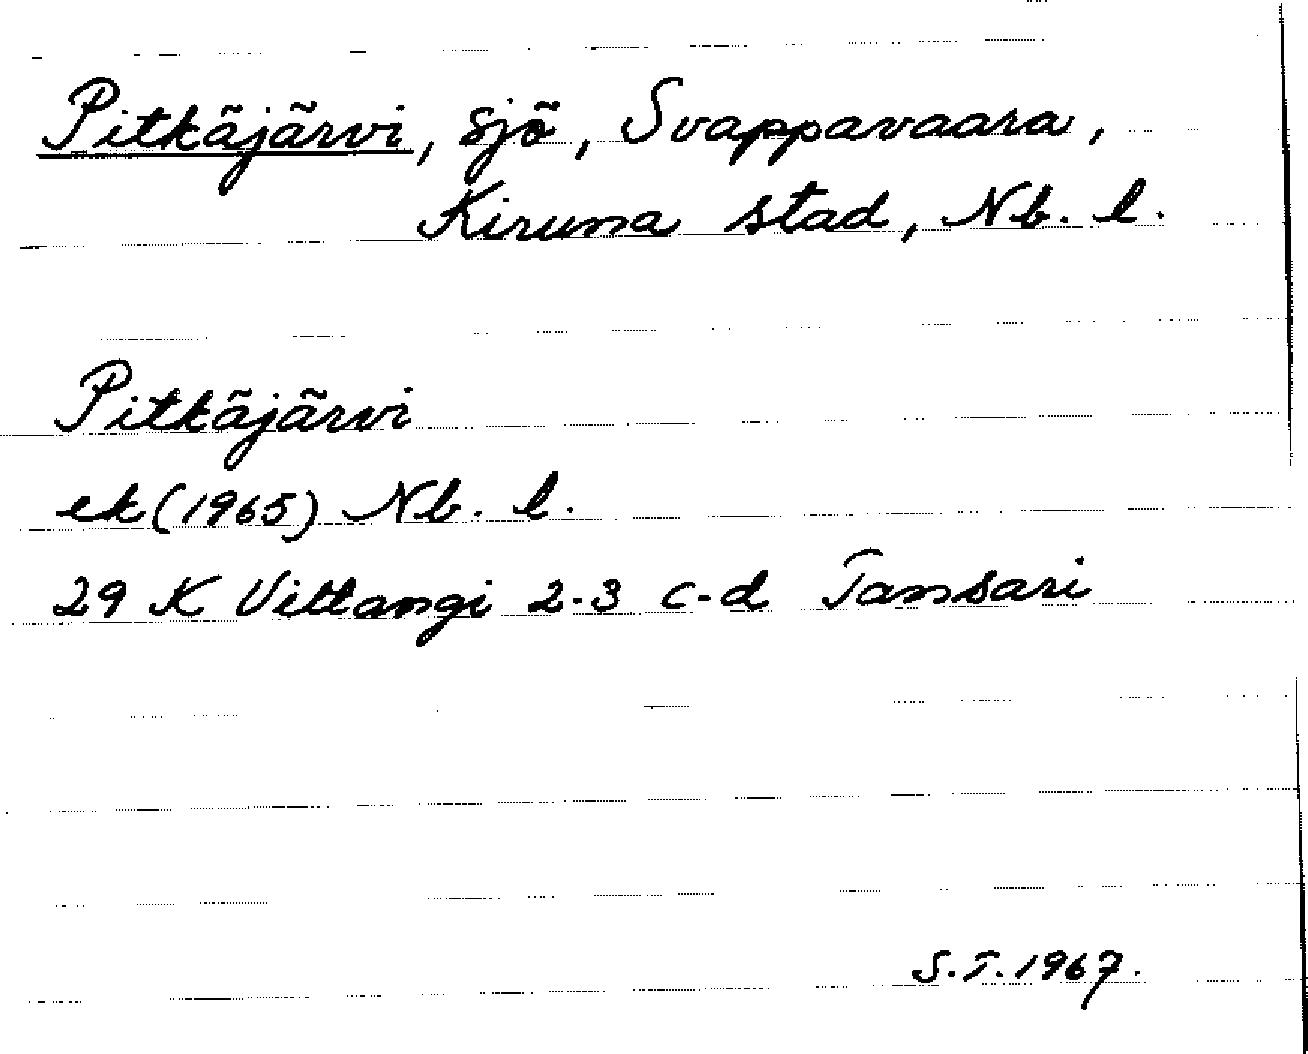 Pitkäjärvi, sjö, Svappavaara,
Kiruna stad, Nb. l.
Pitkäjärvi
ek (1965) Nb. l.
29 K Vittangi 2-3 c-d Tansari
S.T. 1967.